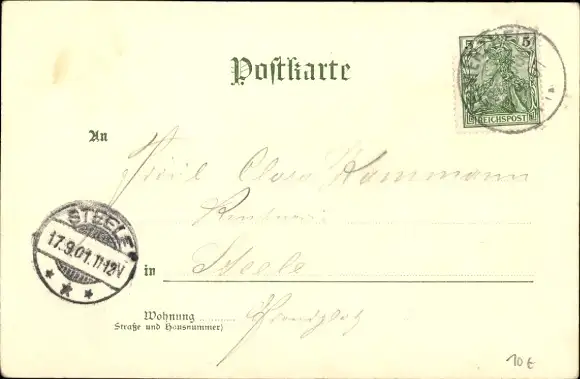 5 5
REICHSPOST
Postkarte
An
Clara Hammann
STEELE
17.9.01.11-12V
in Steele
Wohnung
Straße und Hausnummer)
10 €